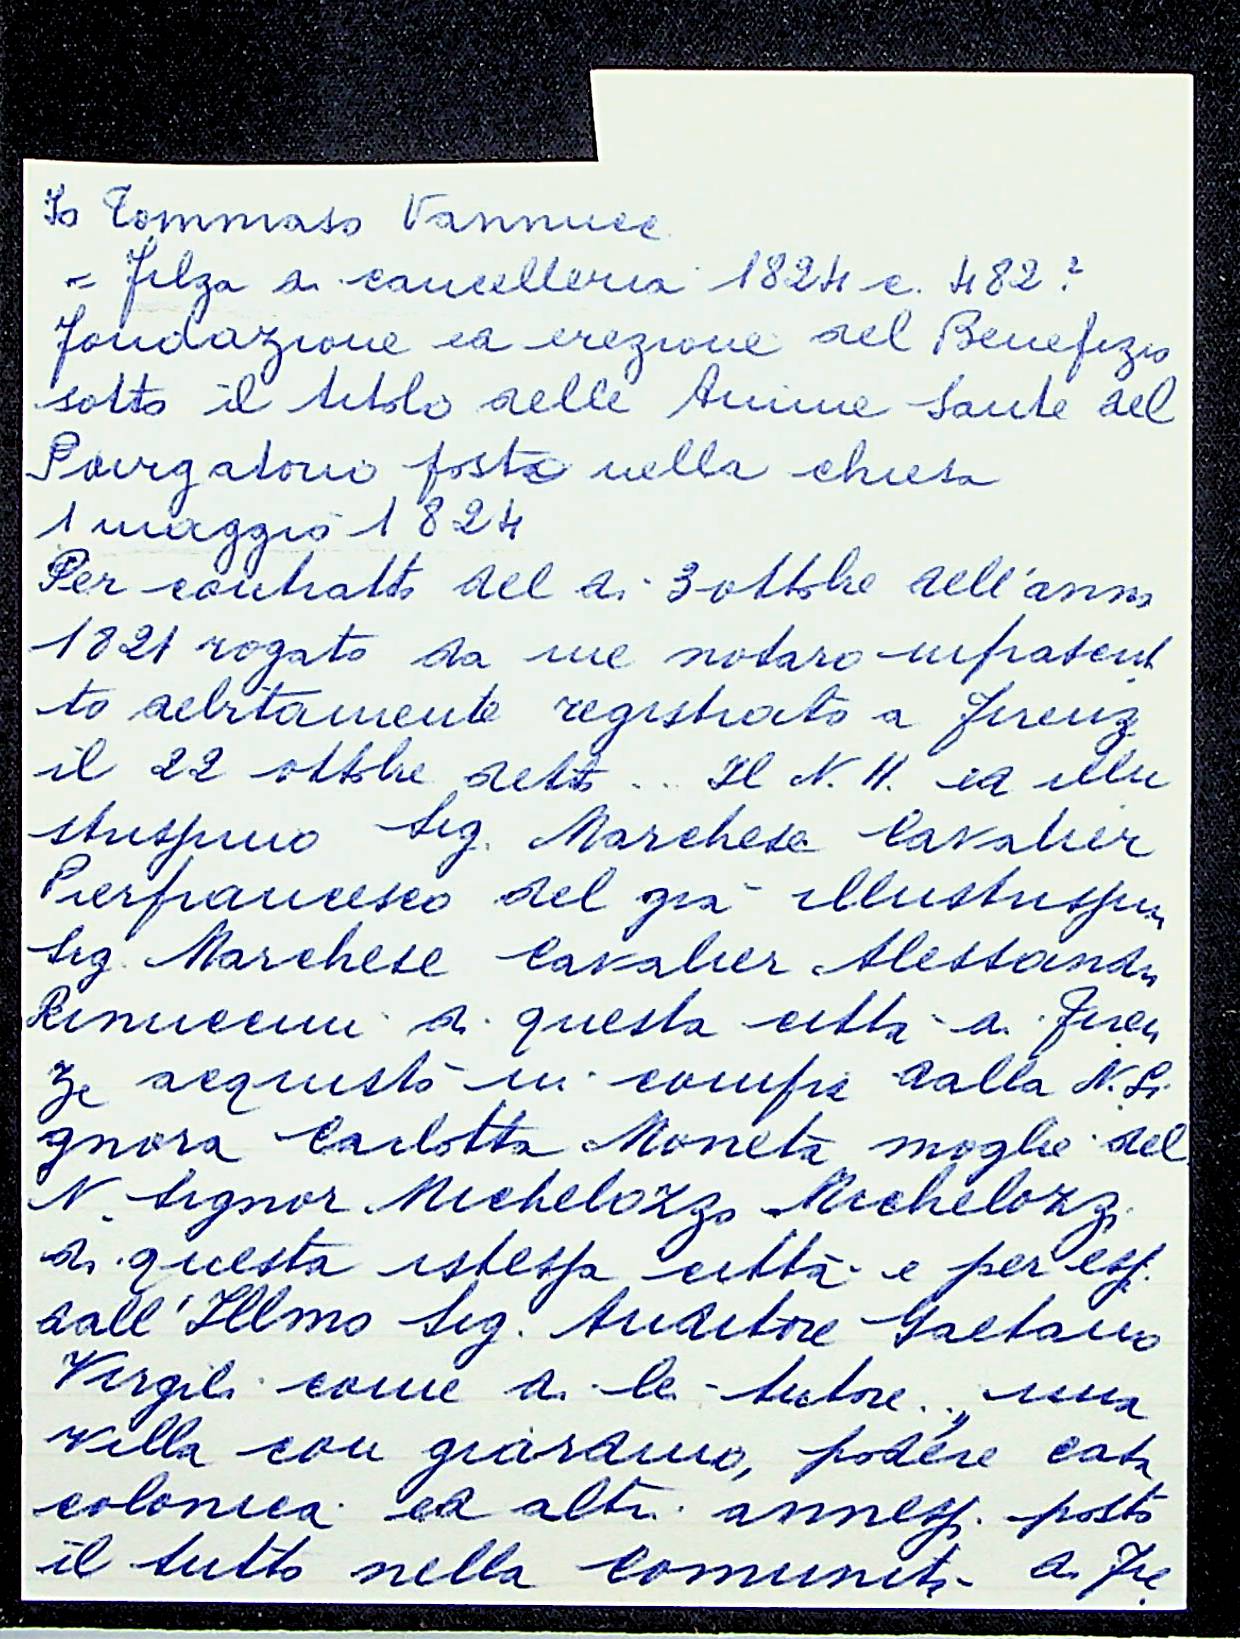 Io Tommaso Vannucc
= Filza di cancelleria 1824 c. 482?
Fondazione ed erezione del Benefizio
sotto il titolo delle Anime Sante del
Purgatorio posto nella chiesa
1 maggio 1824
Per contratto del dì 3 ottobre dell'anno
1821 rogato da me notaro infrascrit
to debitamente registrato a Firenz
il 22 ottobre detto ... Il N. H. ed illu
strissimo Sig. Marchese Cavalier
Pierfrancesco del già illustrissimo
Sig. Marchese Cavalier Alessandro
Rinuccini di questa città di Firen
ze acquistò in compra dalla N. Si
gnora Carlotta Moneta moglie del
N. Signor Michelozzo Michelozzi
di questa istessa città e per essi
dall'Illmo Sig. Auditore Gaetano
Virgili come di lei tutore.. una
villa con giardino, podere casa
colonica ed altri annessi posto
il tutto nella Comunità di Fie